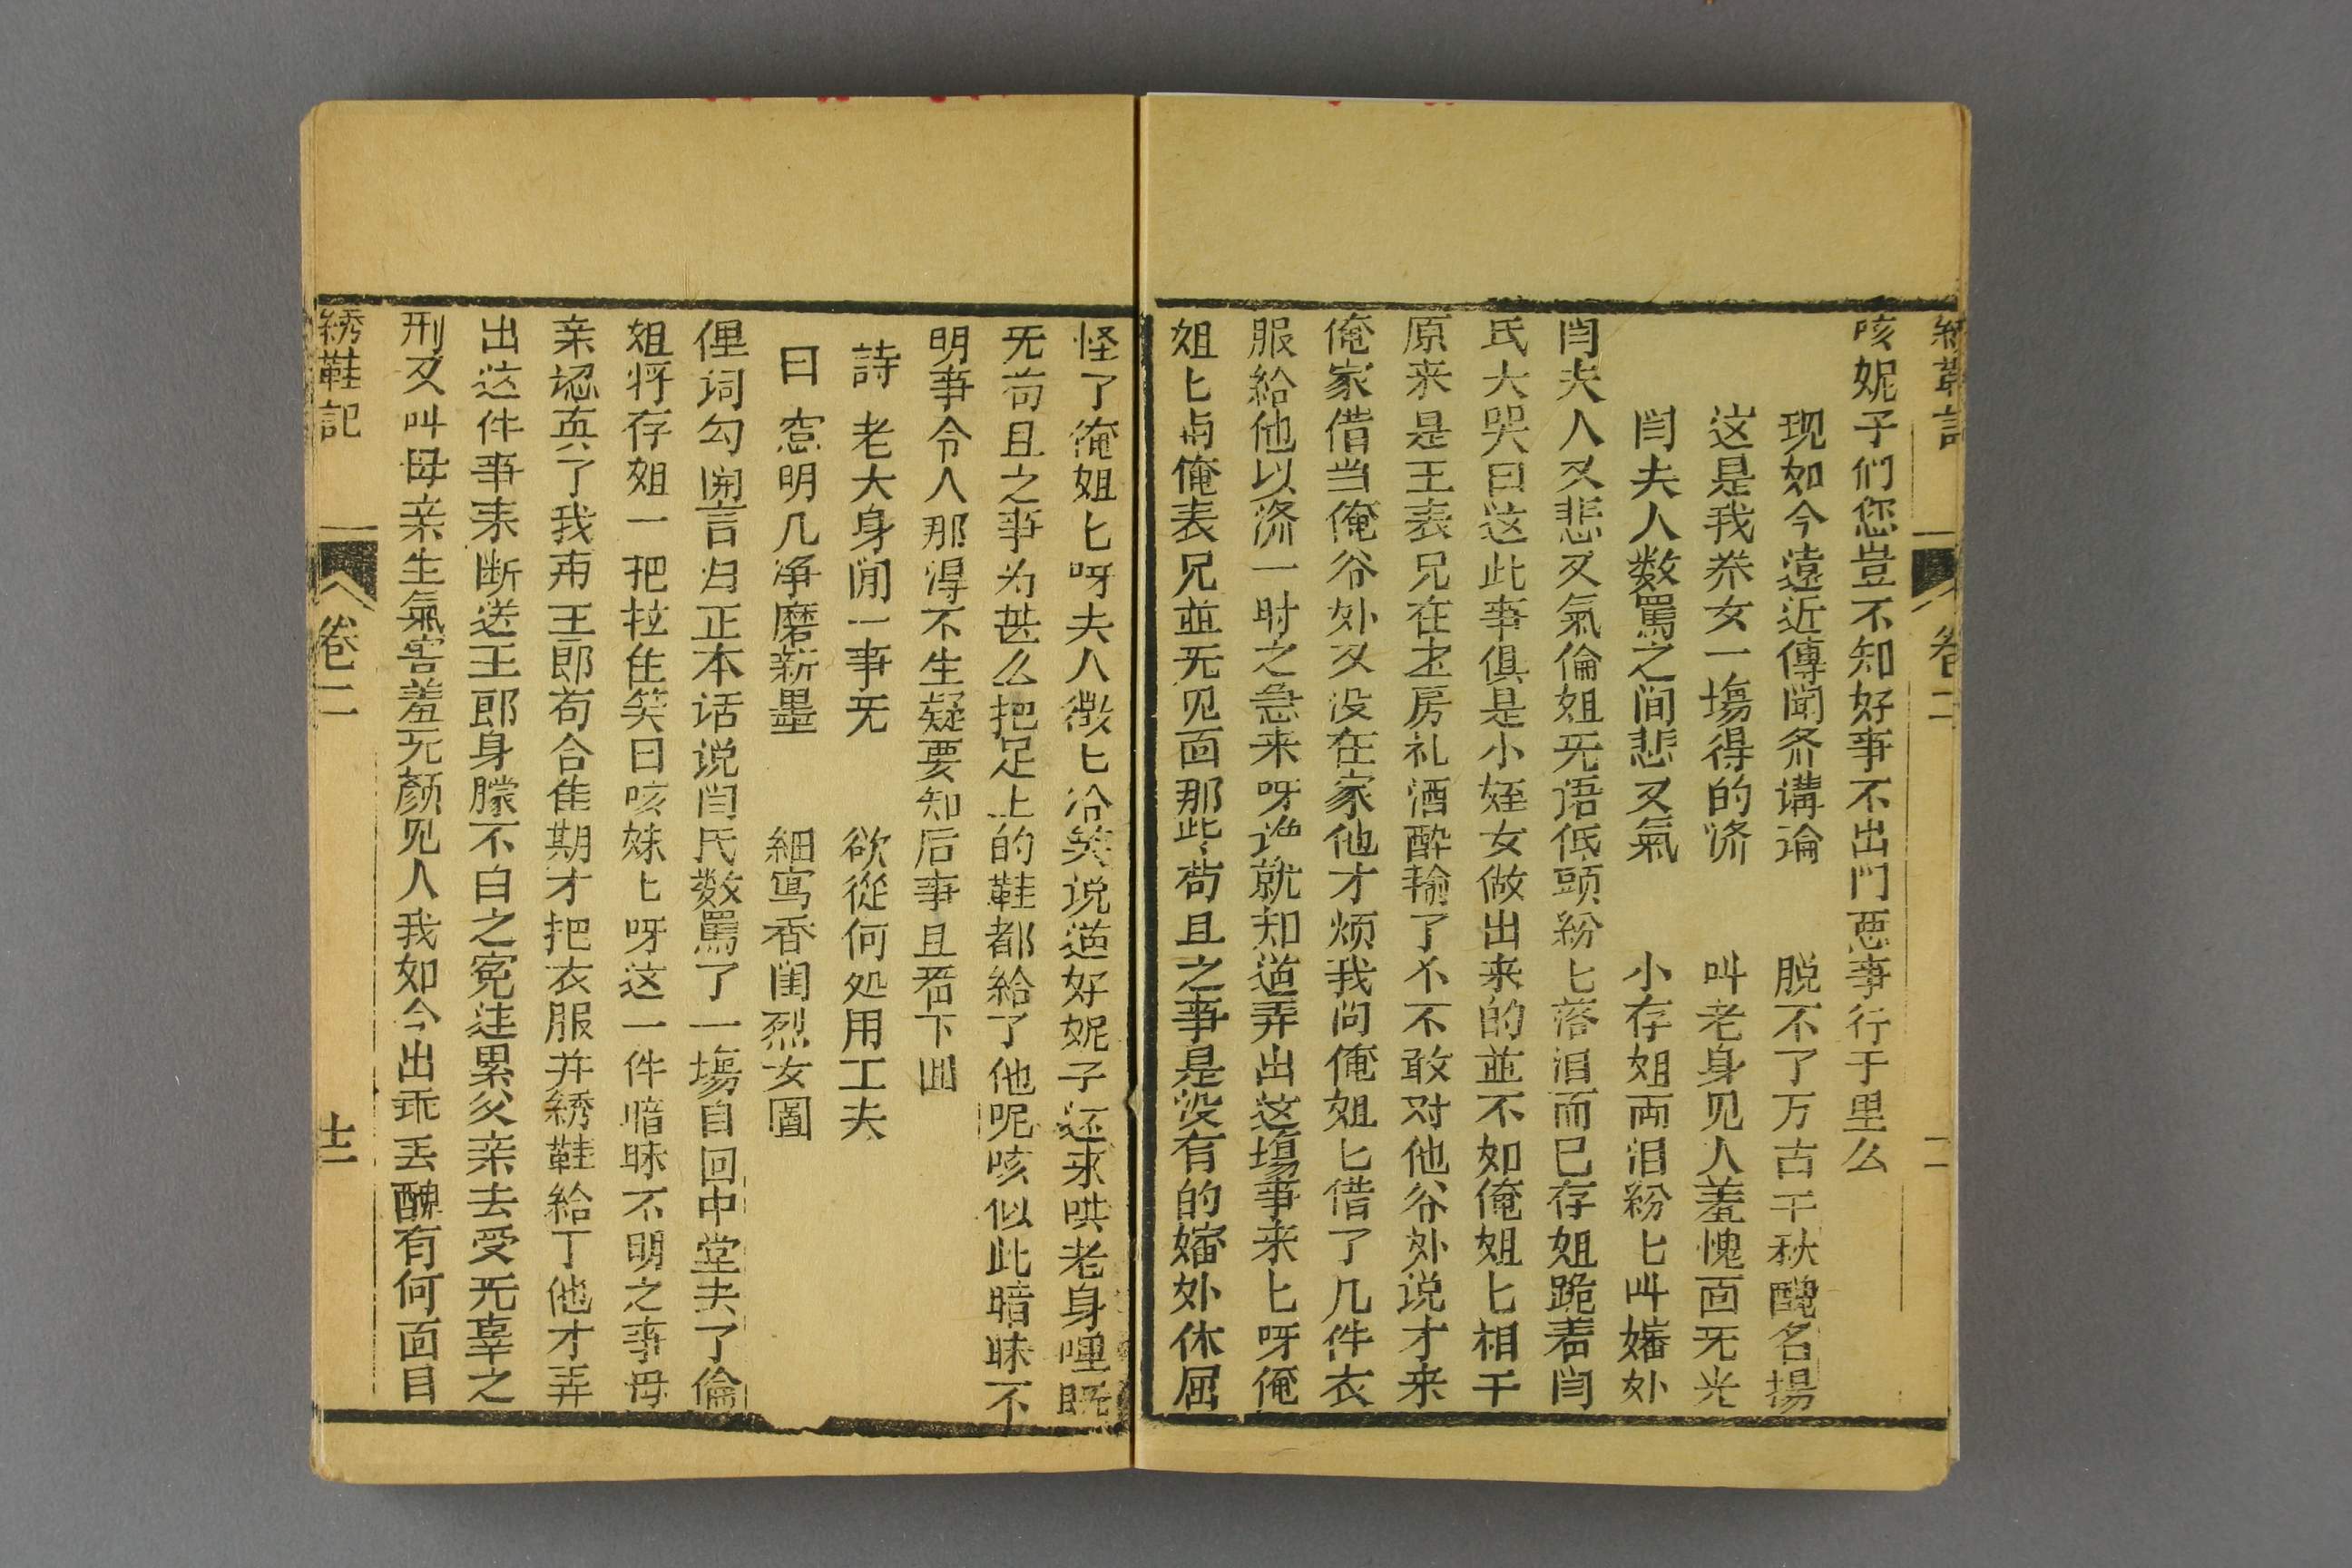 綉鞋記 卷二
咳妮子们您岂不知好事不出门恶事行千里么
现如今遠近傳聞各講論 脱不了万古千秋醜名揚
这是我养女一塲得的济 叫老身见人羞愧面无光
闫夫人数駡之间悲又氣 小存姐両泪紛匕叫嬸外
闫夫人又悲又氣倫姐无语低頭紛匕落泪而已存姐跪着闫
氏大哭曰这此事俱是小姪女做出来的並不如俺姐匕相干
原来是王表兄在书房礼酒醉输了个不敢对他爷处说才来
俺家借当俺爷处又没在家他才烦我问俺姐匕借了几件衣
服給他以济一时之急来呀谁就知道弄出这塲事来匕呀俺
姐匕与俺表兄並无见面那些苟且之事是没有的嬸外休屈
怪了俺姐匕呀夫人微匕冷笑说道好妮子还来哄老身哩既
无苟且之事为甚么把足上的鞋都給了他呢咳似此暗昧不
明事令人那淂不生疑要知后事且看下回
詩 老大身閒一事无 欲從何処用工夫
曰 窓明几净磨新墨 細寫香闺烈女圖
俚词勾開言归正本话说闫氏数駡了一塲自回中堂去了倫
姐将存姐一把拉住笑曰咳妹匕呀这一件暗昧不明之事母
亲認真了我再王郎苟合隹期才把衣服并綉鞋給了他才弄
出这件事来断送王郎身朦不白之寃连累父亲去受无辜之
刑又叫母亲生氣害羞无颜见人我如今出乖丢醜有何面目
綉鞋記 卷二 十二